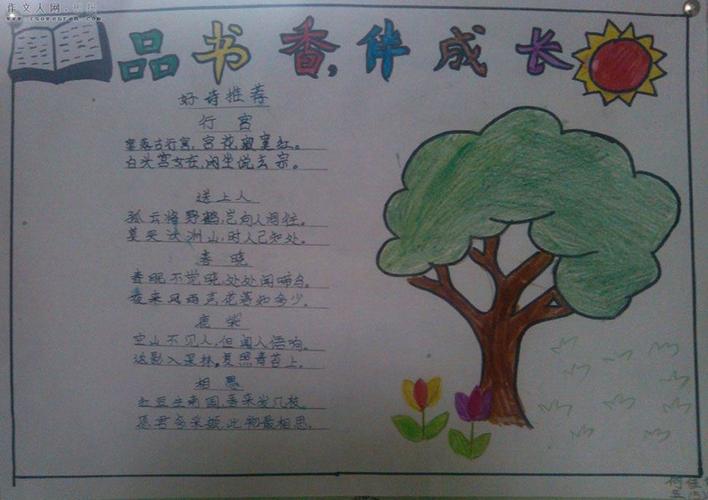 作文人网
www.zuowenren.com
品书香,伴成长
好诗推荐
行宫
寥落古行宫,宫花寂寞红。
白头宫女在,闲坐说玄宗。
送上人
孤云将野鹤,岂向人间住。
莫买沃洲山,时人已知处。
春晓
春眠不觉晓,处处闻啼鸟。
夜来风雨声,花落知多少。
鹿柴
空山不见人,但闻人语响。
返影入深林,复照青苔上。
相思
红豆生南国,春来发几枝。
愿君多采撷,此物最相思。